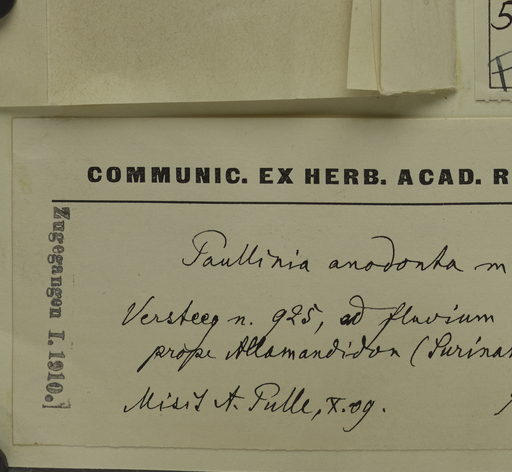 5
COMMUNIC. EX HERB. ACAD. R
Zugegangen I. 1910.
Paullinia anodonta m
Versteeg n. 925, ad fluvium
prope Allamandidon (Surinam
Misit A. Pulle, X.09.